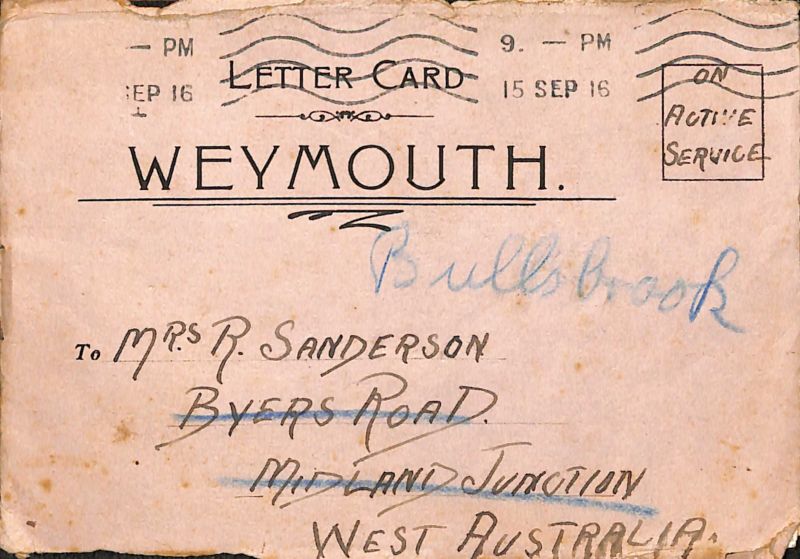 — PM
9. — PM
SEP 16
15 SEP 16
LETTER CARD
ON
ACTIVE
SERVICE
WEYMOUTH.
Bullsbrook
To MRS R. SANDERSON
BYERS ROAD.
MIDLAND JUNCTION
WEST AUSTRALIA.